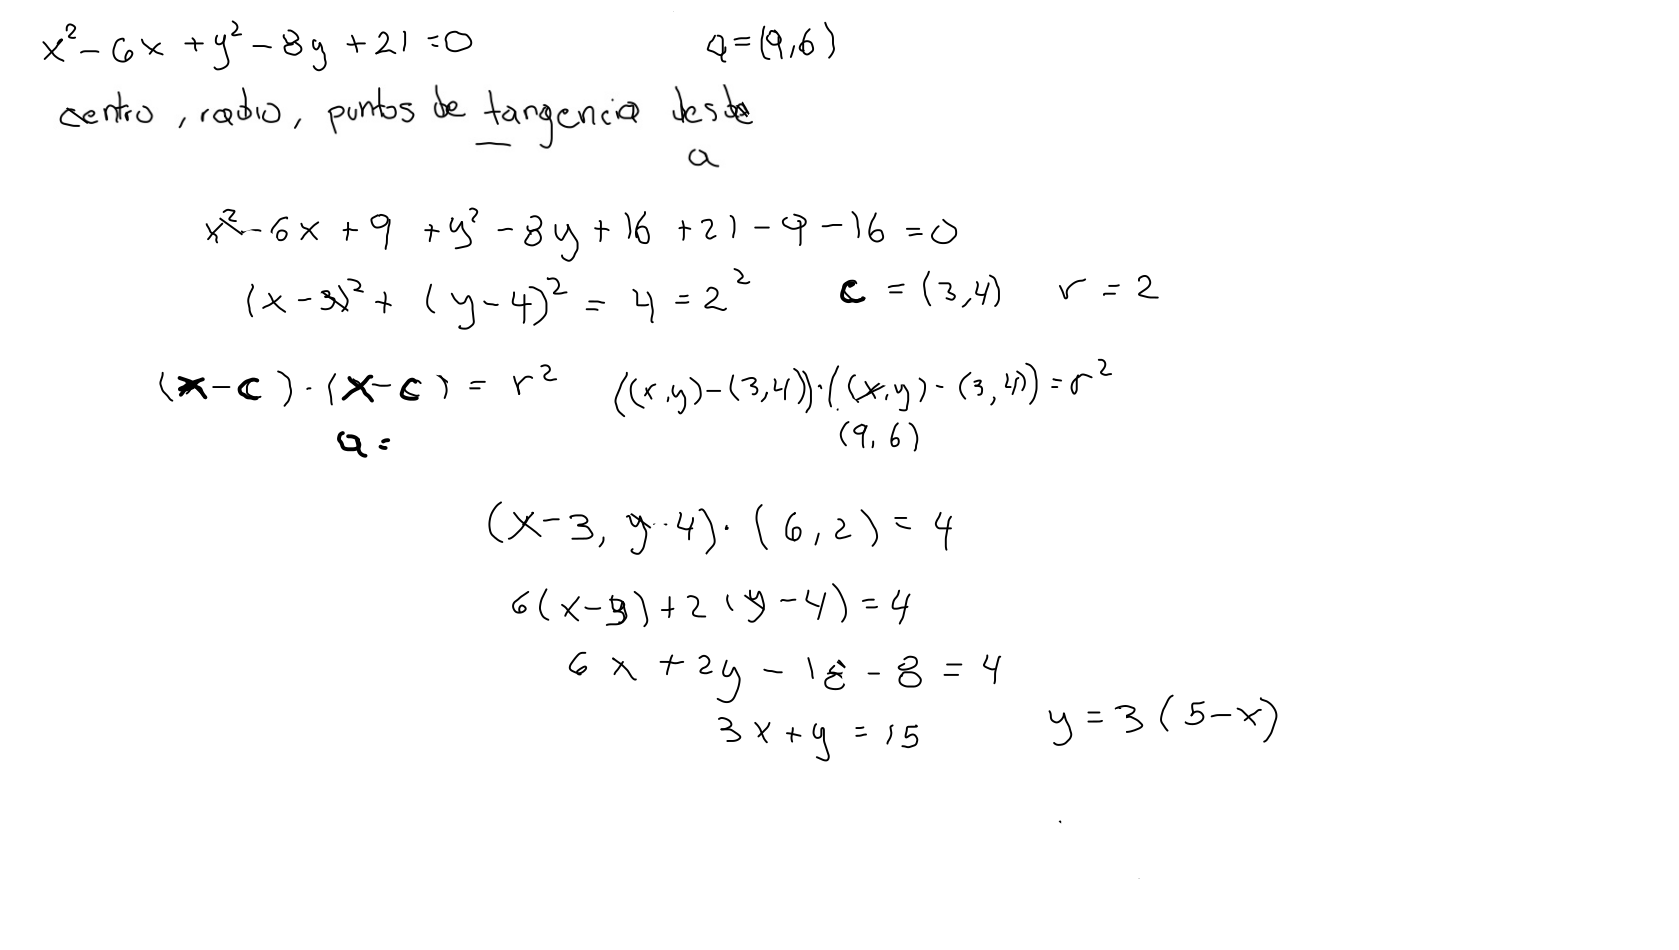 x² - 6x + y² - 8y + 21 = 0 a = (9,6)
centro, radio, puntos de tangencia desde
a
x² - 6x + 9 + y² - 8y + 16 + 21 - 9 - 16 = 0
(x - 3)² + (y - 4)² = 4 = 2² c = (3,4) r = 2
(x - c) · (x - c) = r² ((x,y) - (3,4)) · ((x,y) - (3,4)) = r²
a = (9,6)
(x - 3, y - 4) · (6, 2) = 4
6(x - 3) + 2(y - 4) = 4
6x + 2y - 18 - 8 = 4
3x + y = 15 y = 3(5 - x)